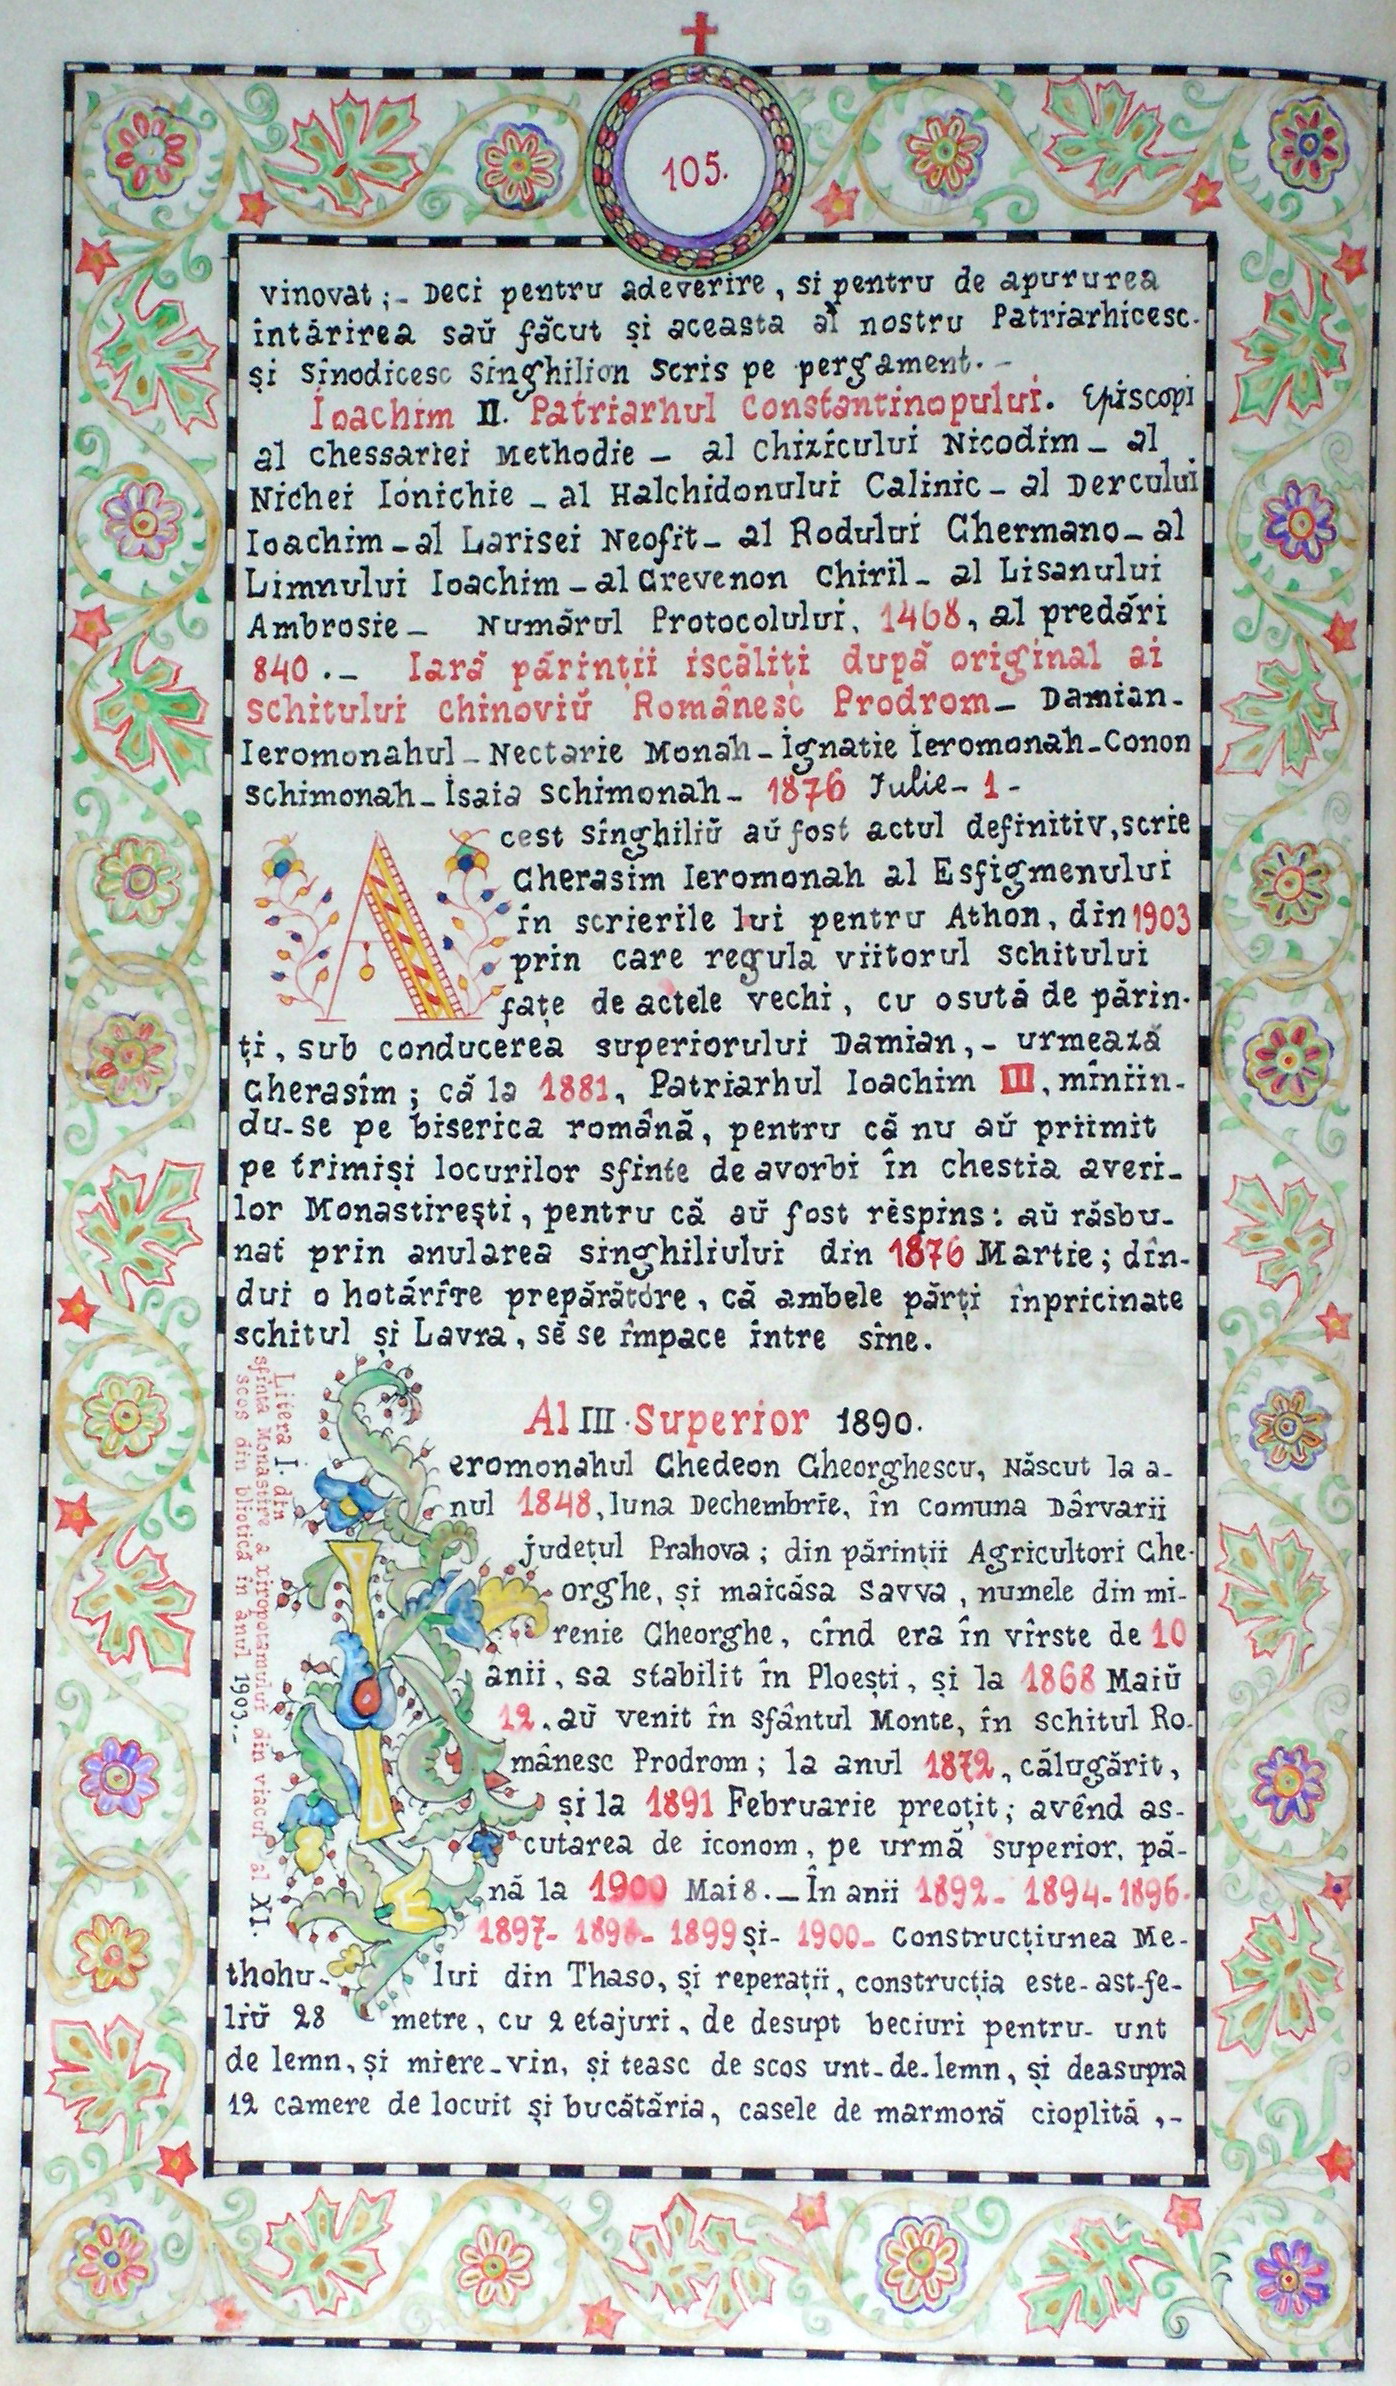 105.
vinovat ;- Deci pentru adeverire, si pentru de apururea
întărirea saŭ făcut și aceasta al nostru Patriarhicesc.
și Sinodicesc Singhilion Scris pe pergament. -
Ioachim II. Patriarhul Constantinopului. Episcopi
al chessariei Methodie - al Chizicului Nicodim - al
Nichei Ionichie - al Halchidonului Calinic - al Dercului
Ioachim - al Larisei Neofit - al Rodului Ghermano - al
Limnului Ioachim - al Grevenon Chiril - al Lisanului
Ambrosie - Numărul Protocolului, 1468, al predări
840 . - Iară părinții iscăliți după original ai
schitului chinoviŭ Românesc Prodrom - Damian -
Ieromonahul - Nectarie Monah - Ignatie Ieromonah - Conon
schimonah - Isaia schimonah - 1876 Iulie - 1 -
Acest singhiliŭ aŭ fost actul definitiv, scrie
Gherasim Ieromonah al Esfigmenului
în scrierile lui pentru Athon, din 1903
prin care regula viitorul schitului
fațe de actele vechi, cu osută de părin-
ți, sub conducerea superiorului Damian, - urmează
Gherasîm ; că la 1881, Patriarhul Ioachim III, mîniin-
du-se pe biserica română, pentru că nu aŭ priimit
pe trimiși locurilor sfinte de avorbi în chestia averi-
lor Monastirești, pentru că aŭ fost rĕspins : aŭ răsbu-
nat prin anularea singhiliului din 1876 Martie ; dîn-
dui o hotărîre prepărătóre, că ambele părți înpricinate
schitul și Lavra, sĕ se împace între sîne.
Al III Superior 1890.
Ieromonahul Ghedeon Gheorghescu, Născut la a-
nul 1848, luna Dechembrie, în comuna Dârvarii
județul Prahova ; din părinții Agricultori Ghe-
orghe, și maicăsa Savva, numele din mi-
renie Gheorghe, cînd era în vîrste de 10
anii, sa stabilit în Ploești, și la 1868 Maiŭ
12, aŭ venit în sfântul Monte, în schitul Ro-
mânesc Prodrom ; la anul 1872, călugărit,
și la 1891 Februarie preoțit ; avênd as-
cutarea de iconom, pe urmă superior, pă-
nă la 1900 Mai 8. - În anii 1892 - 1894 - 1896 -
1897 - 1898 - 1899 și - 1900 - construcțiunea Me-
thohu- lui din Thaso, și reperații, construcția este - ast-fe-
liŭ 28 metre, cu 2 etajuri, de desupt beciuri pentru - unt
de lemn, și miere - vin, și teasc de scos unt-de-lemn, și deasupra
12 camere de locuit și bucătăria, casele de marmoră cioplită , -
Litera I. din
sfinta Monastire a Xiropotamului din viacul al XI.
scos din bliotică în anul 1903. -